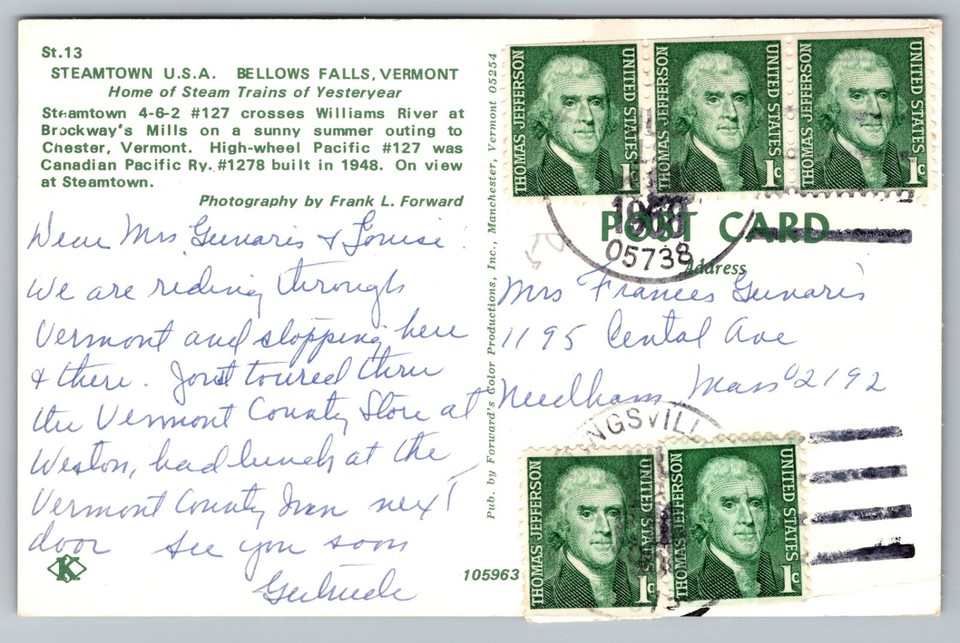 St.13
STEAMTOWN U.S.A. BELLOWS FALLS, VERMONT
Home of Steam Trains of Yesteryear
Steamtown 4-6-2 #127 crosses Williams River at
Brockway's Mills on a sunny summer outing to
Chester, Vermont. High-wheel Pacific #127 was
Canadian Pacific Ry. #1278 built in 1948. On view
at Steamtown.
Photography by Frank L. Forward
Dear Mrs Gunaris & Louise:
We are riding through
Vermont and stopping here
& there. Just toured thru
the Vermont County Store at
Weston, had lunch at the
Vermont County Inn next
door see you soon
Gertrude
K
105963
Pub. by Forward's Color Productions, Inc., Manchester, Vermont 05254
THOMAS JEFFERSON
UNITED STATES
1c
THOMAS JEFFERSON
UNITED STATES
1c
THOMAS JEFFERSON
UNITED STATES
1c
POST CARD
05738
Address
Mrs Frances Gunaris
1195 Cental Ave
Needham Mass 02192
NGSVILL
THOMAS JEFFERSON
UNITED STATES
1c
THOMAS JEFFERSON
UNITED STATES
1c